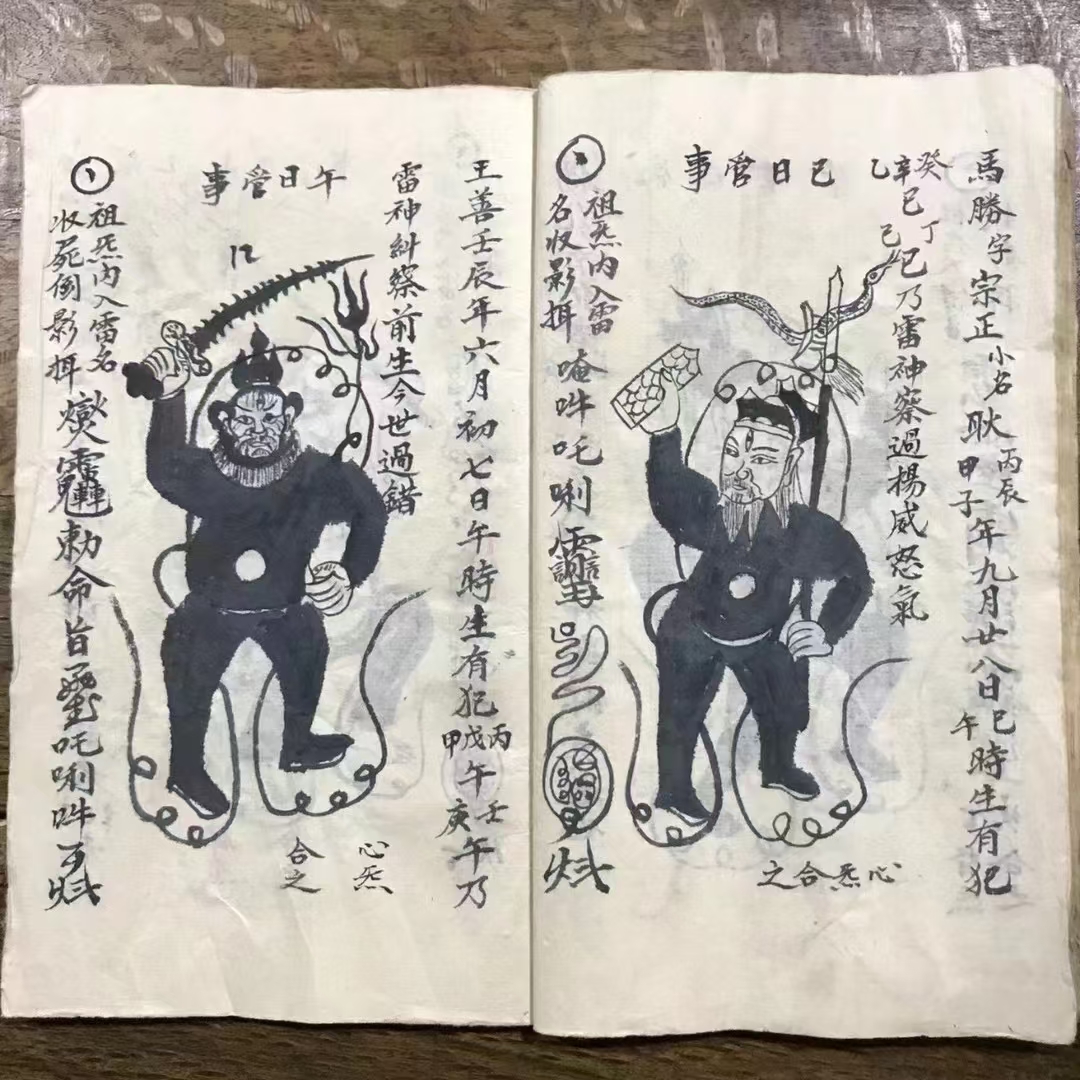 馬勝字宗正小名耿 丙辰 甲子年九月廿八日巳午時生有犯
癸辛乙巳
丁己巳乃雷神察過揚威怒氣
巳日管事
祖炁内入雷
名收影揖
唵吽吒唎
心炁合之
王善壬辰年六月初七日午時生有犯甲戊丙午庚壬午乃
雷神糾察前生今世過錯
午日管事
12
祖炁内入雷名
收屍倒影揖
勅命旨
吒唎吽
心炁
合之